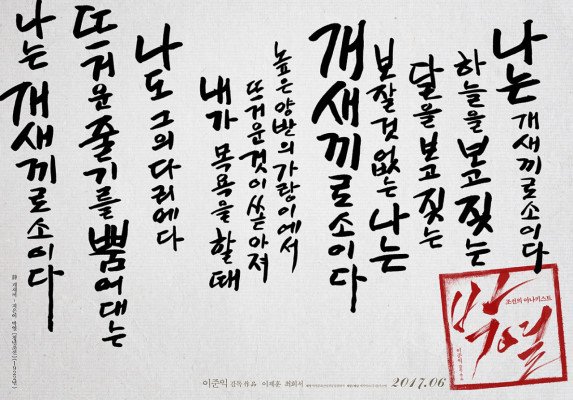 나는 개새끼로소이다
하늘을 보고 짖는
달을 보고 짖는
보잘것없는 나는
개새끼로소이다
높은 양반의 가랑이에서
뜨거운 것이 쏟아져
내가 목욕을 할 때
나도 그의 다리에다
뜨거운 줄기를 뿜어대는
나는 개새끼로소이다
조선의 아나키스트
박열
이준익 감독作品 이제훈 최희서
2017.06